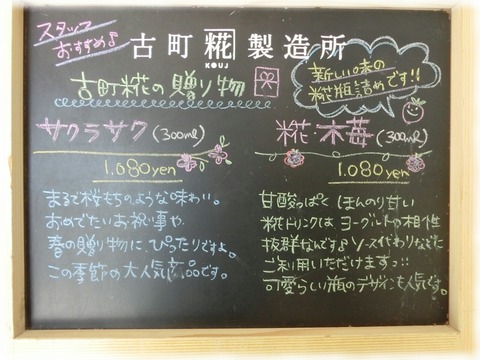 スタッフ
おすすめ♪
古町糀製造所
KOUJ
古町糀の贈り物
新しい味の
糀瓶詰めです!!
サクラサク(300ml)
1,080yen
まるで桜もちのような味わい。
おめでたいお祝い事や、
春の贈り物に、ぴったりですよ。
この季節の大人気商品です。
糀・木苺(300ml)
1,080yen
甘酸っぱく ほんのり甘い
糀ドリンクは、ヨーグルトの相性
抜群なんです♪ソース代わりなどに
ご利用いただけますっ!!
可愛らしい瓶のデザインも人気です。